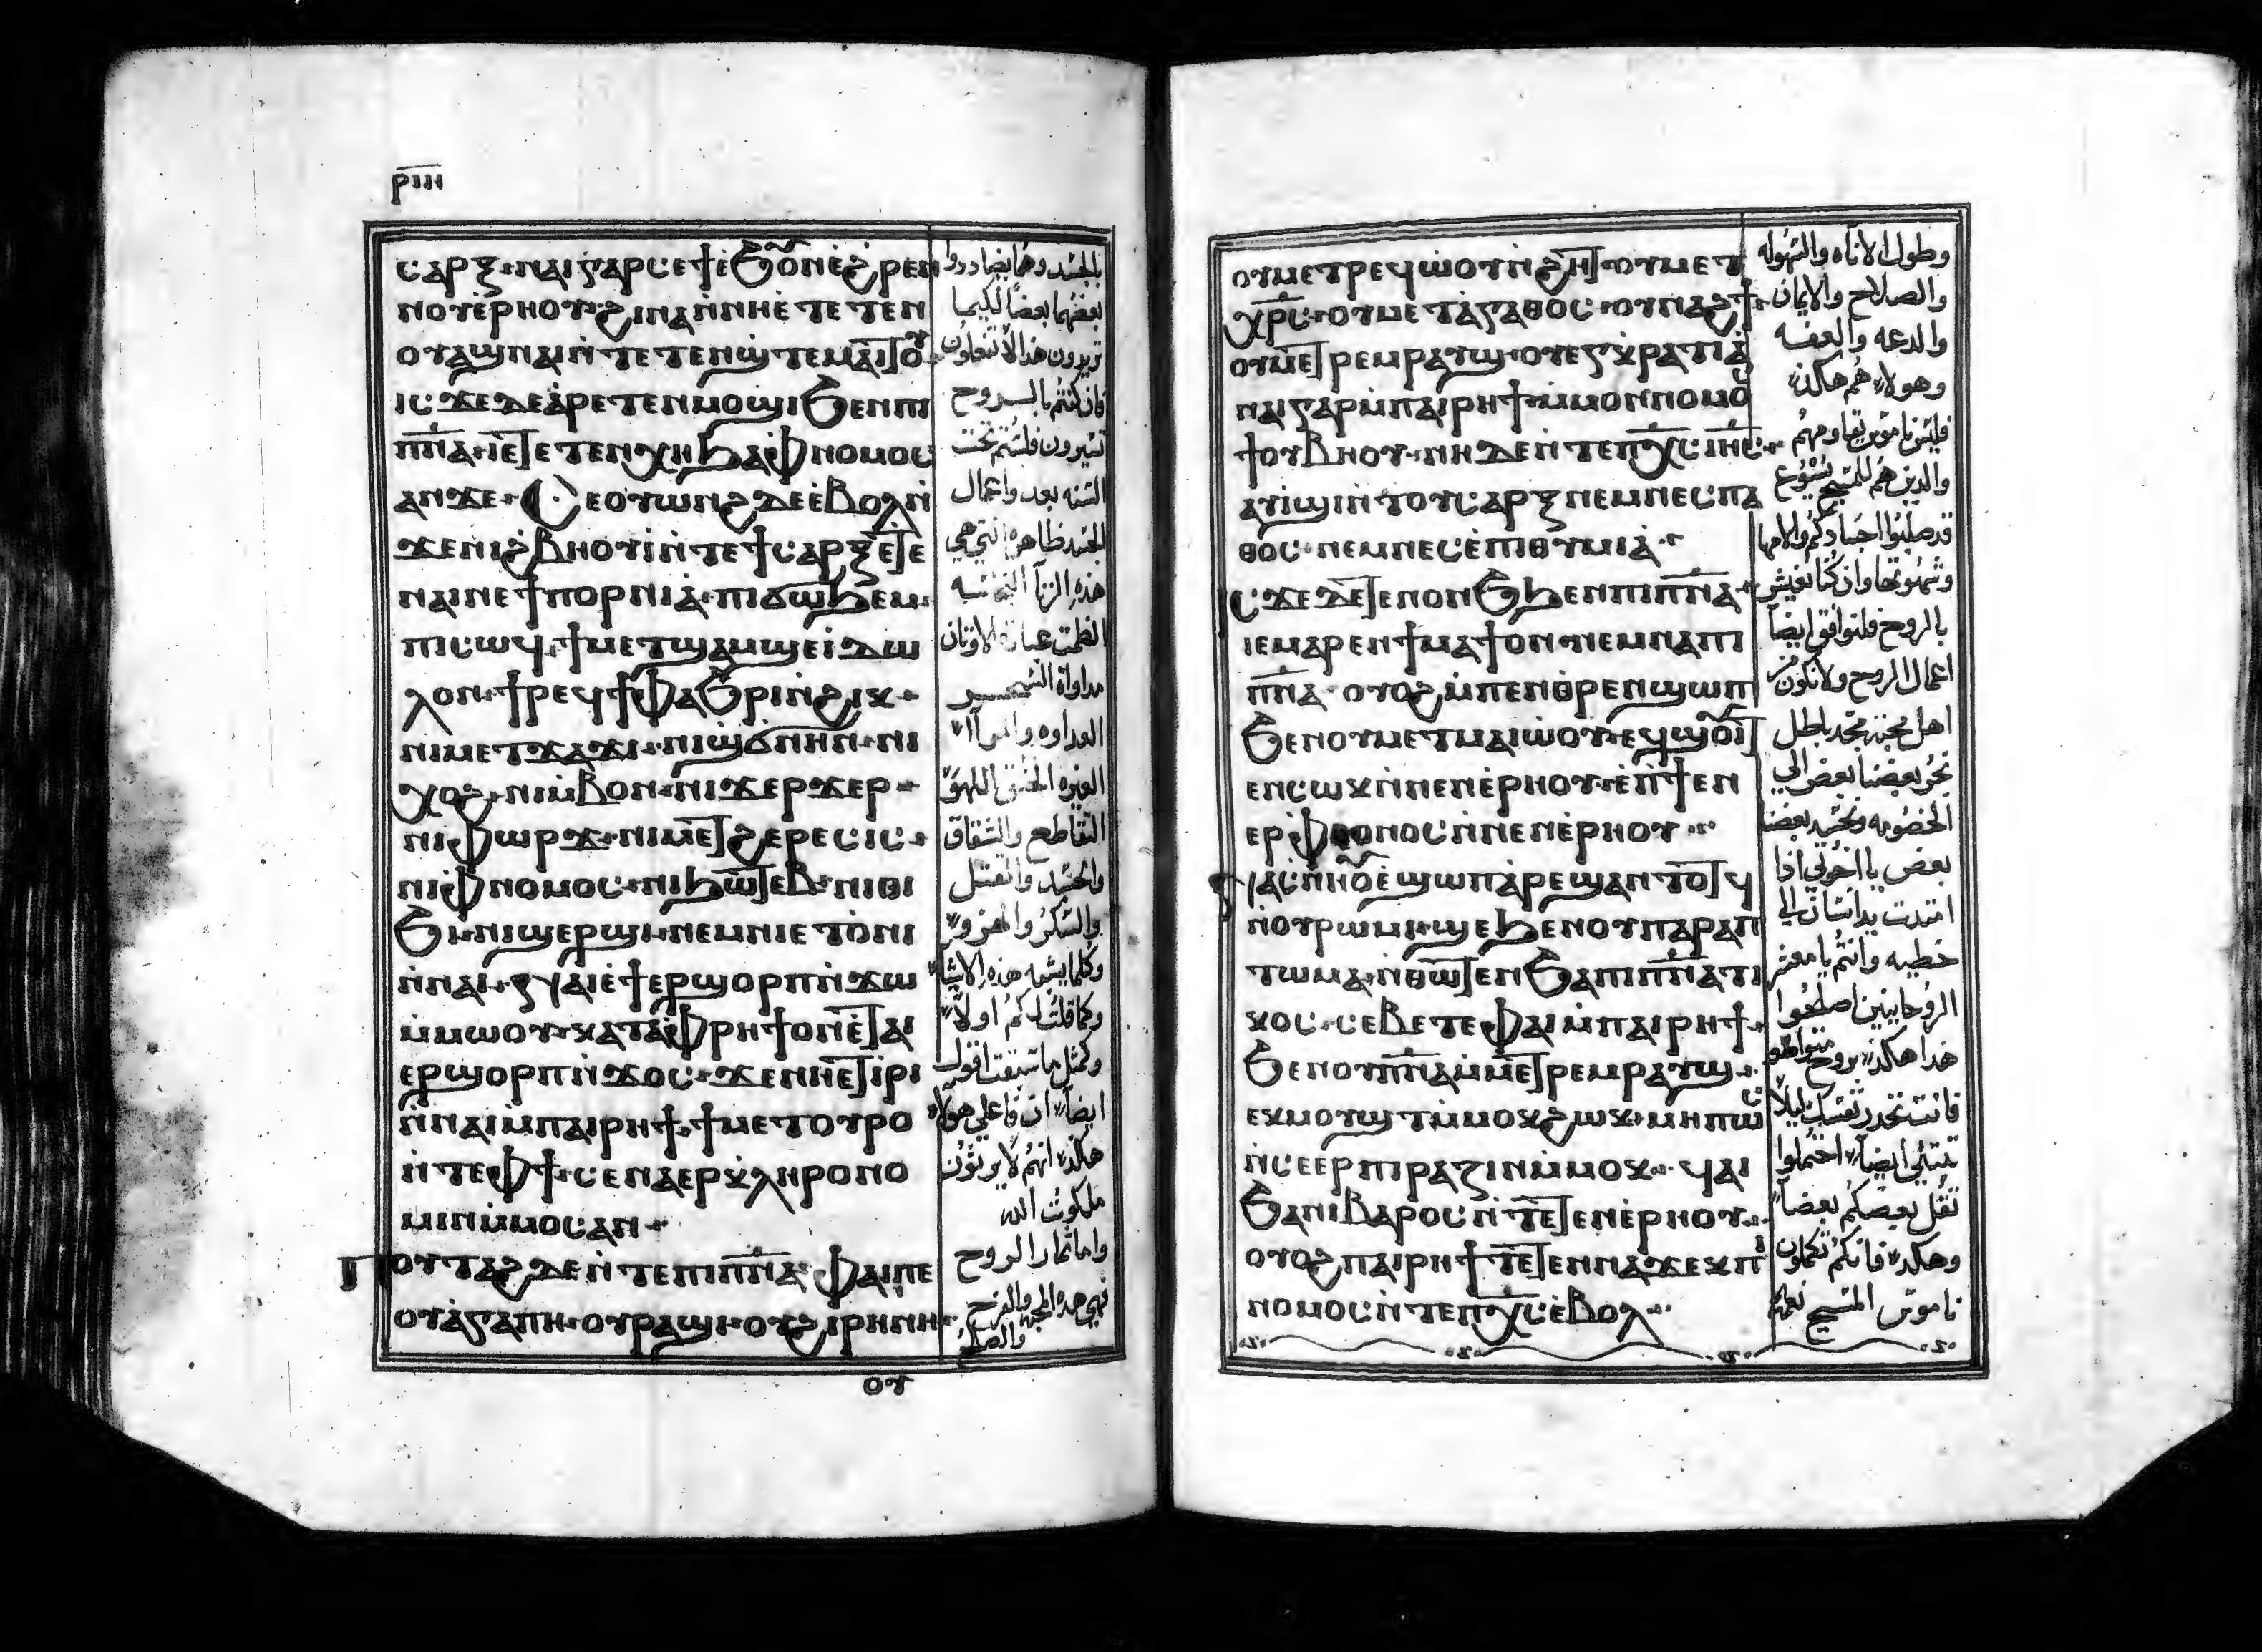 ⲥⲁⲣⲝ · ⲛⲁⲓ ⲅⲁⲣ ⲥⲉϯ ⲉϧⲟⲩⲛ ⲉϩⲣⲉⲛ
ⲛⲟⲩⲉⲣⲏⲟⲩ · ϩⲓⲛⲁ ⲛⲛⲏ ⲉⲧⲉⲧⲉⲛ
ⲟⲩⲁϣ ⲛⲁⲓ ⲛⲧⲉⲧⲉⲛϣⲧⲉⲙⲁⲓⲧⲟⲩ
ⲓⲥϫⲉ ⲇⲉ ⲁⲣⲉⲧⲉⲛⲙⲟϣⲓ ϧⲉⲛ ⲡⲓ
ⲡⲛⲁ · ⲓⲉ ⲧⲉⲧⲉⲛⲭⲏ ϧⲁ ⲫⲛⲟⲙⲟⲥ
ⲁⲛ ϫⲉ · ⲥⲉⲟⲩⲱⲛϩ ⲇⲉ ⲉⲃⲟⲗ ⲛ
ϫⲉ ⲛⲓϩⲃⲏⲟⲩⲓ ⲛⲧⲉ ϯⲥⲁⲣⲝ ⲉⲧⲉ
ⲛⲁⲓ ⲛⲉ ϯⲡⲟⲣⲛⲓⲁ · ⲡⲓϭⲱϧⲉⲙ ·
ⲡⲓⲥⲱϥ · ϯⲙⲉⲧϣⲁⲙϣⲉ ⲓⲇⲱ
ⲗⲟⲛ · ϯⲣⲉϥϯⲫⲁϧⲣⲓ ⲛϩⲓⲕ ·
ⲛⲓⲙⲉⲧϫⲁϫⲓ · ⲛⲓϣϭⲛⲏⲛ · ⲛⲓ
ⲭⲟϩ · ⲛⲓⲙⲃⲟⲛ · ⲛⲓϫⲉⲣϫⲉⲣ ·
ⲛⲓⲫⲱⲣϫ · ⲛⲓⲙⲉⲧϩⲉⲣⲉⲥⲓⲥ ·
ⲛⲓⲫⲛⲟⲙⲟⲥ · ⲛⲓϧⲱⲧⲉⲃ · ⲛⲓⲑⲓ
ϧⲓ · ⲛⲓϣⲉⲣϣⲓ · ⲛⲉⲙ ⲛⲓⲉⲧⲟⲛⲓ
ⲛⲛⲁⲓ · ⲛⲁⲓ ⲉϯⲉⲣϣⲟⲣⲡ ⲛϫⲱ
ⲙⲙⲱⲟⲩ · ⲕⲁⲧⲁ ⲫⲣⲏϯ ⲟⲛ ⲉⲧⲁⲓ
ⲉⲣϣⲟⲣⲡ ⲛϫⲟⲥ · ϫⲉ ⲛⲏⲉⲧⲓⲣⲓ
ⲛⲛⲁⲓ ⲙⲡⲁⲓⲣⲏϯ · ϯⲙⲉⲧⲟⲩⲣⲟ
ⲛⲧⲉ ⲫϯ · ⲥⲉⲛⲁⲉⲣⲕⲗⲏⲣⲟⲛⲟ
ⲙⲓⲛ ⲙⲙⲟⲥ ⲁⲛ ·
ⲡⲟⲩⲧⲁϩ ⲇⲉ ⲛⲧⲉ ⲡⲓⲡⲛⲁ · ⲫⲁⲓ ⲡⲉ
ⲟⲩⲁⲅⲁⲡⲏ · ⲟⲩⲣⲁϣⲓ · ⲟⲩϩⲓⲣⲏⲛⲏ ·
ⲟⲩ
بالجسد وهما يضاددوا
بعضهما بعضا لكيما
تريدون هذا لا تفعلون
فان كنتم بالروح
تسيرون فلستم تحت
السنه بعد واعمال
الجسد ظاهره التي هي
هذه الزنا النجاسه
الطمث عبادة الاوثان
مداواة السحر
العداوه والمرآا
الغيره الحنق التلهو
التقاطع والشقاق
والحسد والقتل
والسكر والهزو
وكلما يشبه هذه الاشيا
وكما قلت لكم اولا
وكمثل ما سبقت اقول
ايضا ان فاعلي هولاء
هكذا انهم لا يرثون
ملكوت الله
واما ثمار الروح
فهي هذه المحبه والفرح
والصلح
ⲟⲩⲙⲉⲧⲣⲉϥⲱⲟⲩⲛϩⲏⲧ · ⲟⲩⲙⲉⲧ
ⲭⲣⲥ · ⲟⲩⲙⲉⲧⲁⲅⲁⲑⲟⲥ · ⲟⲩⲛⲁϩϯ ·
ⲟⲩⲙⲉⲧⲣⲉⲙⲣⲁⲩϣ · ⲟⲩⲉⲅⲕⲣⲁⲧⲓⲁ
ⲛⲁⲓ ⲅⲁⲣ ⲙⲡⲁⲓⲣⲏϯ · ⲙⲙⲟⲛ ⲛⲟⲙⲟⲥ
ϯ ⲟⲩⲃⲏⲟⲩ · ⲛⲏ ⲇⲉ ⲛⲧⲉ ⲡⲭⲥ ⲓⲏⲥ ·
ⲁⲩⲓϣⲓ ⲛⲧⲟⲩⲥⲁⲣⲝ ⲛⲉⲙ ⲛⲉⲥⲡⲁ
ⲑⲟⲥ · ⲛⲉⲙ ⲛⲉⲥⲉⲡⲓⲑⲩⲙⲓⲁ ·
ⲓⲥϫⲉ ⲇⲉ ⲧⲉⲛⲟⲛϧ ϧⲉⲛ ⲡⲓⲡⲛⲁ ·
ⲓⲉ ⲙⲁⲣⲉⲛϯⲙⲁϯ ⲟⲛ ⲛⲉⲙ ⲛⲁ ⲡⲓ
ⲡⲛⲁ · ⲟⲩⲟϩ ⲙⲡⲉⲛⲑⲣⲉⲛϣⲱⲡⲓ
ϧⲉⲛ ⲟⲩⲙⲉⲧⲙⲁⲓⲱⲟⲩ ⲉϥϣⲟⲩⲓⲧ
ⲉⲛⲥⲱⲕ ⲛⲛⲉⲛⲉⲣⲏⲟⲩ · ⲉⲡϯⲧⲉⲛ
ⲉⲣⲫⲑⲟⲛⲟⲥ ⲛⲛⲉⲛⲉⲣⲏⲟⲩ ·
ⲛⲁⲥⲛⲏⲟⲩ ⲉϣⲱⲡ ⲁⲣⲉϣⲁⲛⲧⲟⲧϥ
ⲛⲟⲩⲣⲱⲙⲓ · ϣⲉ ϧⲉⲛ ⲟⲩⲡⲁⲣⲁⲡ
ⲧⲱⲙⲁ · ⲛⲑⲱⲧⲉⲛ ϧⲁ ⲡⲓⲡⲛⲁⲧⲓ
ⲕⲟⲥ · ⲥⲉⲃⲧⲉ ⲫⲁⲓ ⲙⲡⲁⲓⲣⲏϯ ·
ϧⲉⲛ ⲟⲩⲡⲛⲁ ⲙⲙⲉⲧⲣⲉⲙⲣⲁⲩϣ ·
ⲉⲕⲙⲟⲩϣⲧ ⲙⲙⲟⲕ ϩⲱⲕ · ⲙⲏⲡⲱⲥ
ⲛⲥⲉⲉⲣⲡⲓⲣⲁⲍⲓⲛ ⲙⲙⲟⲕ · ϥⲁⲓ
ϧⲁ ⲛⲓⲃⲁⲣⲟⲥ ⲛⲧⲉ ⲧⲉⲛⲉⲣⲏⲟⲩ ·
ⲟⲩⲟϩ ⲡⲁⲓⲣⲏϯ ⲧⲉⲧⲉⲛⲛⲁϫⲉⲕ ⲡⲓ
ⲛⲟⲙⲟⲥ ⲛⲧⲉ ⲡⲭⲥ ⲉⲃⲟⲗ ·
وطول الاناه والسهوله
والصلاح والايمان
والدعه والعفه
وهولاء هم هكذا
فليس ناموس يقاومهم
والذين هم للمسيح يسوع
قد صلبوا اجسادهم والامها
وشهوتها وان كنا نعيش
بالروح فلنوافق ايضا
اعمال الروح ولا نكون من
اهل محبة مجد باطل
نجر بعضنا بعض الي
الخصومه ونحسد بعضنا
بعض يا اخوتي اذا
امتدت يد انسان الي
خطيه وانتم يا معشر
الروحانيين اصلحوا
هذا هكذا بروح متواضع
فانت تحذر نفسك ليلا
تبتلي ايضا احتملوا
ثقل بعضكم بعضا
وهكذا فانكم تكملون
ناموس المسيح نعمه